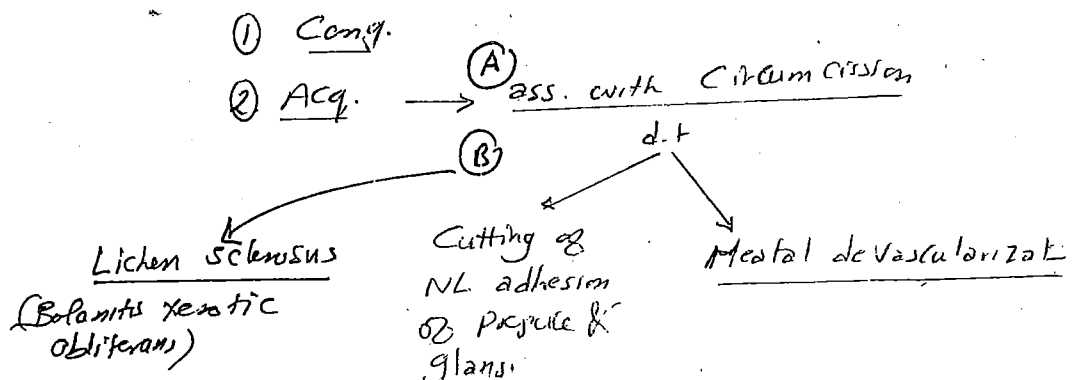 ① Cong.
② Acq. → Ⓐ ass. with Circumcission
d.t
Ⓑ
Lichen Sclerosus
(Balanitis xerotic
obliterans)
Cutting of
NL adhesion
of Prepuce &
glans.
Meatal devascularizat